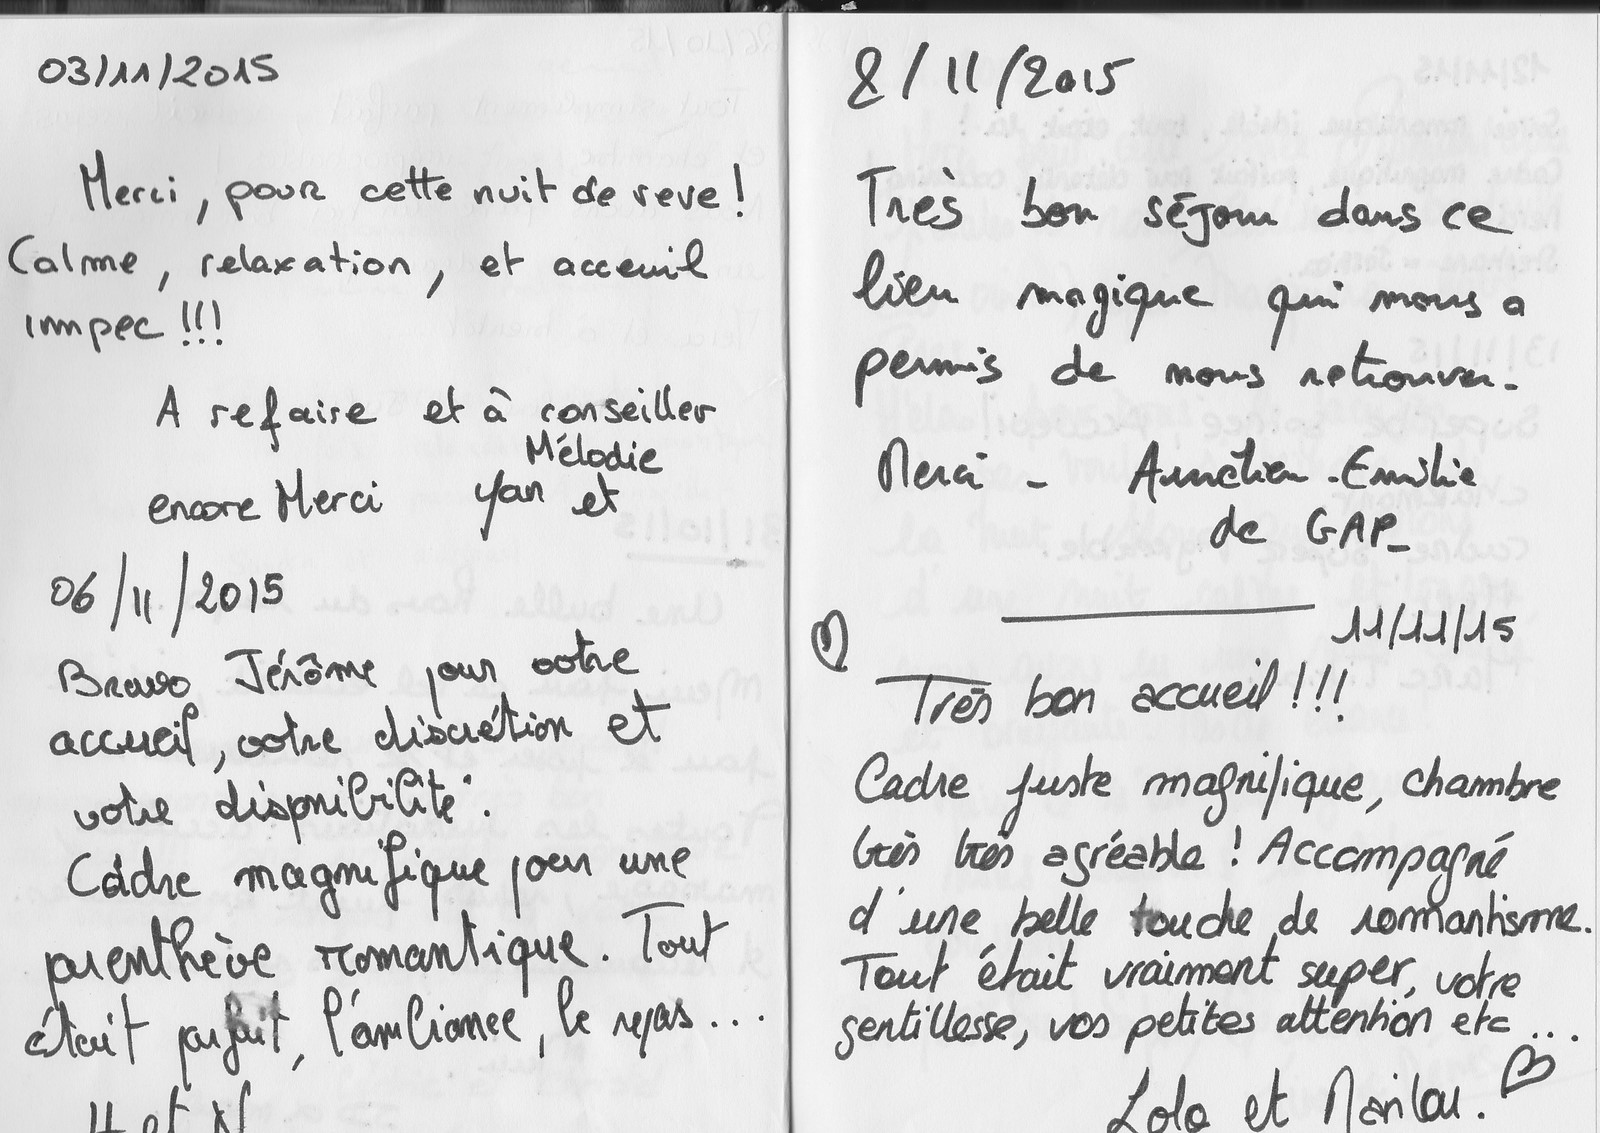 03/11/2015
Merci, pour cette nuit de reve !
Calme, relaxation, et acceuil
impec !!!
A refaire et à conseiller
Mélodie
encore Merci Yan et
06/11/2015
Bravo Jérôme pour votre
accueil, votre discrétion et
votre dispnibilité.
Cadre magnifique pour une
parenthèse romantique. Tout
était parfait, l'ambiance, le repas...
H et N
8/11/2015
Très bon séjour dans ce
lieu magique qui nous a
permis de nous retrouver.
Merci - Aurélien - Emilie
de GAP_
11/11/15
Très bon accueil !!!
Cadre juste magnifique, chambre
très très agréable ! Accompagné
d'une belle touche de romantisme.
Tout était vraiment super, votre
gentillesse, vos petites attention etc ...
Lola et Marilou.